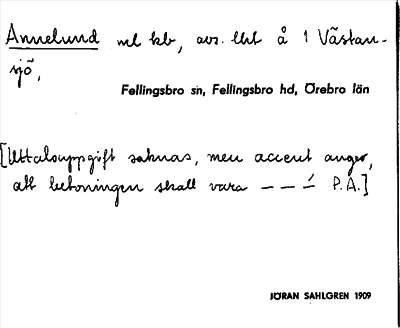 Annelund ml kb, avs. lht å 1 Västan-
sjö,
Fellingsbro sn, Fellingsbro hd, Örebro län
[Uttalsuppgift saknas, men accent anger,
att betoningen skall vara – – –́ P.A.]
JÖRAN SAHLGREN 1909